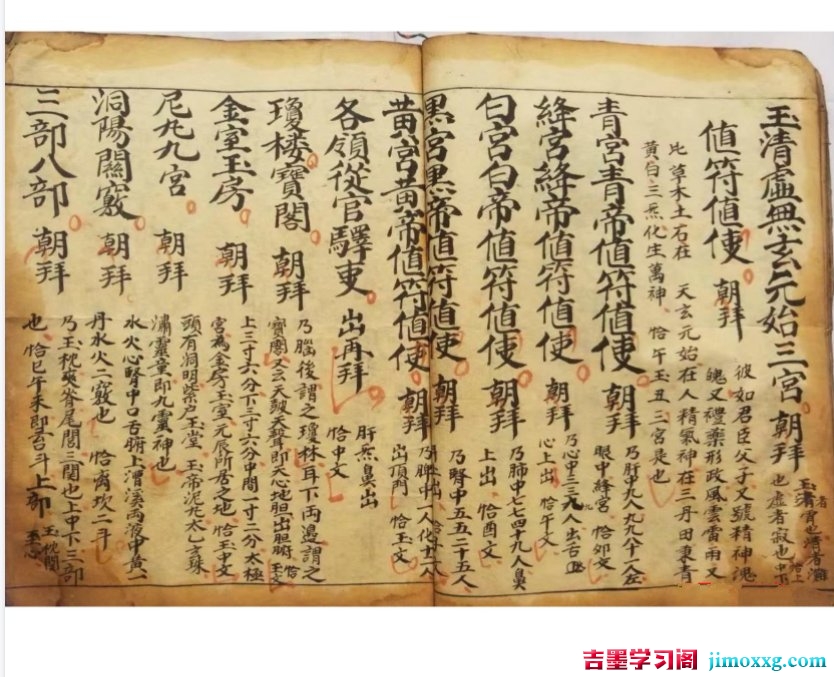 玉清虛無玄元始三宮 朝拜
玉清者
胃也清者濁
也虛者寂也 中下
恰上
值符值使 朝拜
彼如君臣父子又號精神魂
魄又禮樂形政風雲雷雨又
比草木土石在 天玄元始在人精氣神在三丹田秉青
黃白三炁化生萬神 恰午玉丑三宮是也
青宮青帝值符值使 朝拜
乃肝中九人九九八十一人左
眼中絳宮 恰卯文
絳宮絳帝值符值使 朝拜
乃心中三三九人出舌
心上出 恰午文
白宮白帝值符值使 朝拜
乃肺中七七四十九人鼻
上出 恰酉文
黑宮黑帝值符值使 朝拜
乃腎中五五二十五人
黃宮黃帝值符值使 朝拜
乃脾中一人化十二人
出頂門 恰玉文
各領從官驛吏 出再拜
肝炁鼻出
恰中文
瓊樓寶閣 朝拜
乃腦後謂之瓊林耳下兩邊謂之
寶閣又云天鼓天聲即天心地胆出胆腑 恰
玉文
金室玉房 朝拜
上三寸六分下三寸六分中間一寸二分太極
宮為金房玉室元辰所居之地 恰玉中文
尼丸九宮 朝拜
頭有洞明紫户玉堂 玉帝泥丸太乙玄珠
潚靈童即九靈神也
洞陽關竅 朝拜
水火心腎中口舌腑上漕溪兩液中黃一
丹水火二竅也 恰离坎二斗
三部八部 朝拜
乃玉枕夾脊尾閭三關也上中下三部
也 恰巳午未即吾斗上部 玉枕関
玉心
吉墨学习阁 jimoxxg.com